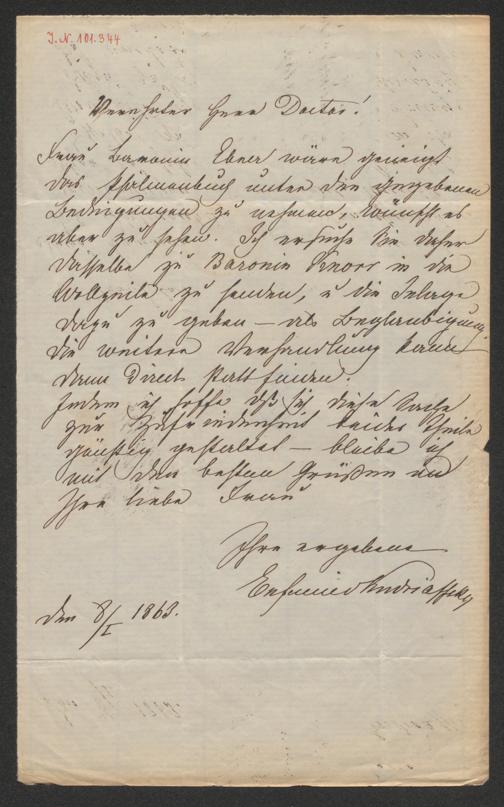 J. N. 101.344
Verehrter Herr Doctor!
Frau Baronin Ebner wäre geneigt
das Psalmenbuch unter den gegebenen
Bedingungen zu nehmen, wünscht es
aber zu sehen. Ich ersuche Sie daher
dasselbe zu Baronin Knorr in die
Wollzeile zu senden, u die Inlage
dazu zu geben — als Beglaubigung.
die weitere Verhandlung kann
dann direct stattfinden.
Indem ich hoffe daß sich diese Sache
zur Zufriedenheit beider Theile
günstig gestaltet — bleibe ich
mit den besten Grüßen an
Ihre liebe Frau
Ihre ergebene
den 8/I 1863.